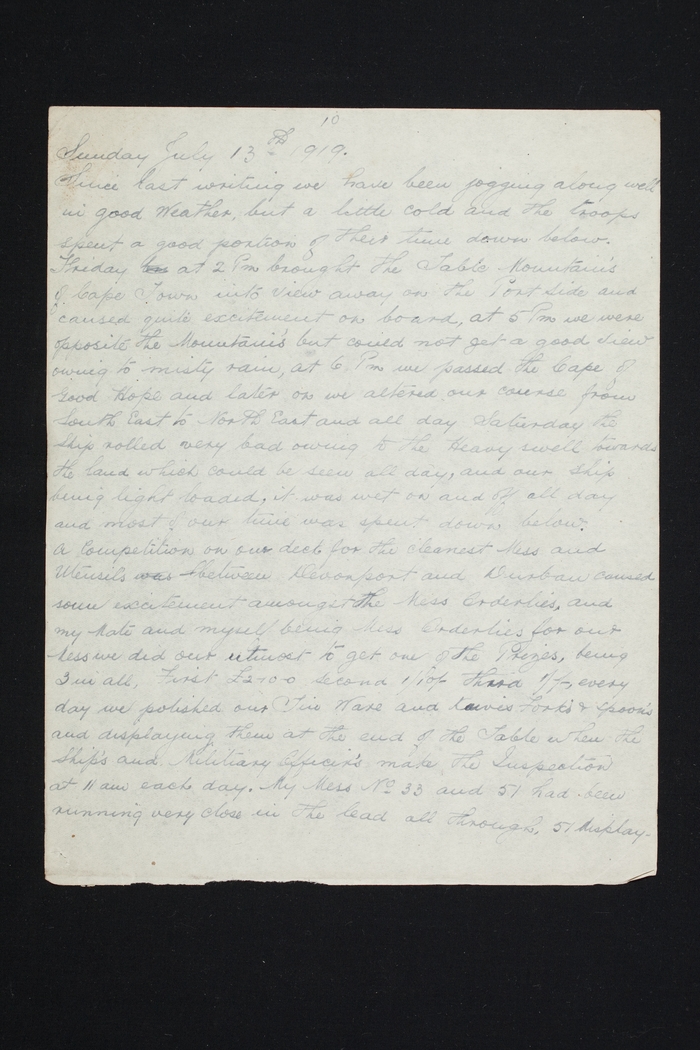 10
Sunday July 13th 1919.
Since last writing we have been jogging along well
in good Weather, but a little cold and the troops
spent a good portion of their time down below.
Friday at 2 Pm brought the Table Mountain's
of Cape Town into view away on the Port side and
caused quite excitement on board, at 5 Pm we were
opposite the Mountain's but could not get a good view
owing to misty rain, at 6 Pm we passed the Cape of
Good Hope and later on we altered our course from
South East to North East and all day Saturday the
ship rolled very bad owing to the Heavy swell towards
the land which could be seen all day, and our ship
being light loaded, it was wet on and off all day
and most of our time was spent down below.
A Competition on our deck for the cleanest Mess and
Utensils was between Devonport and Durban caused
some excitement amongst the Mess Orderlies, and
my Mate and myself being Mess Orderlies for our
Mess we did our utmost to get one of the Prizes, being
3 in all, First £2-0-0 Second Third every
day we polished our Tin Ware and Fork's & Spoon's
and displaying them at the end of the Table when the
Ship's and Military Officer's make the Inspection
at 11 am each day. My Mess No 33 and 51 had been
running very close in the lead all through, 51 display-